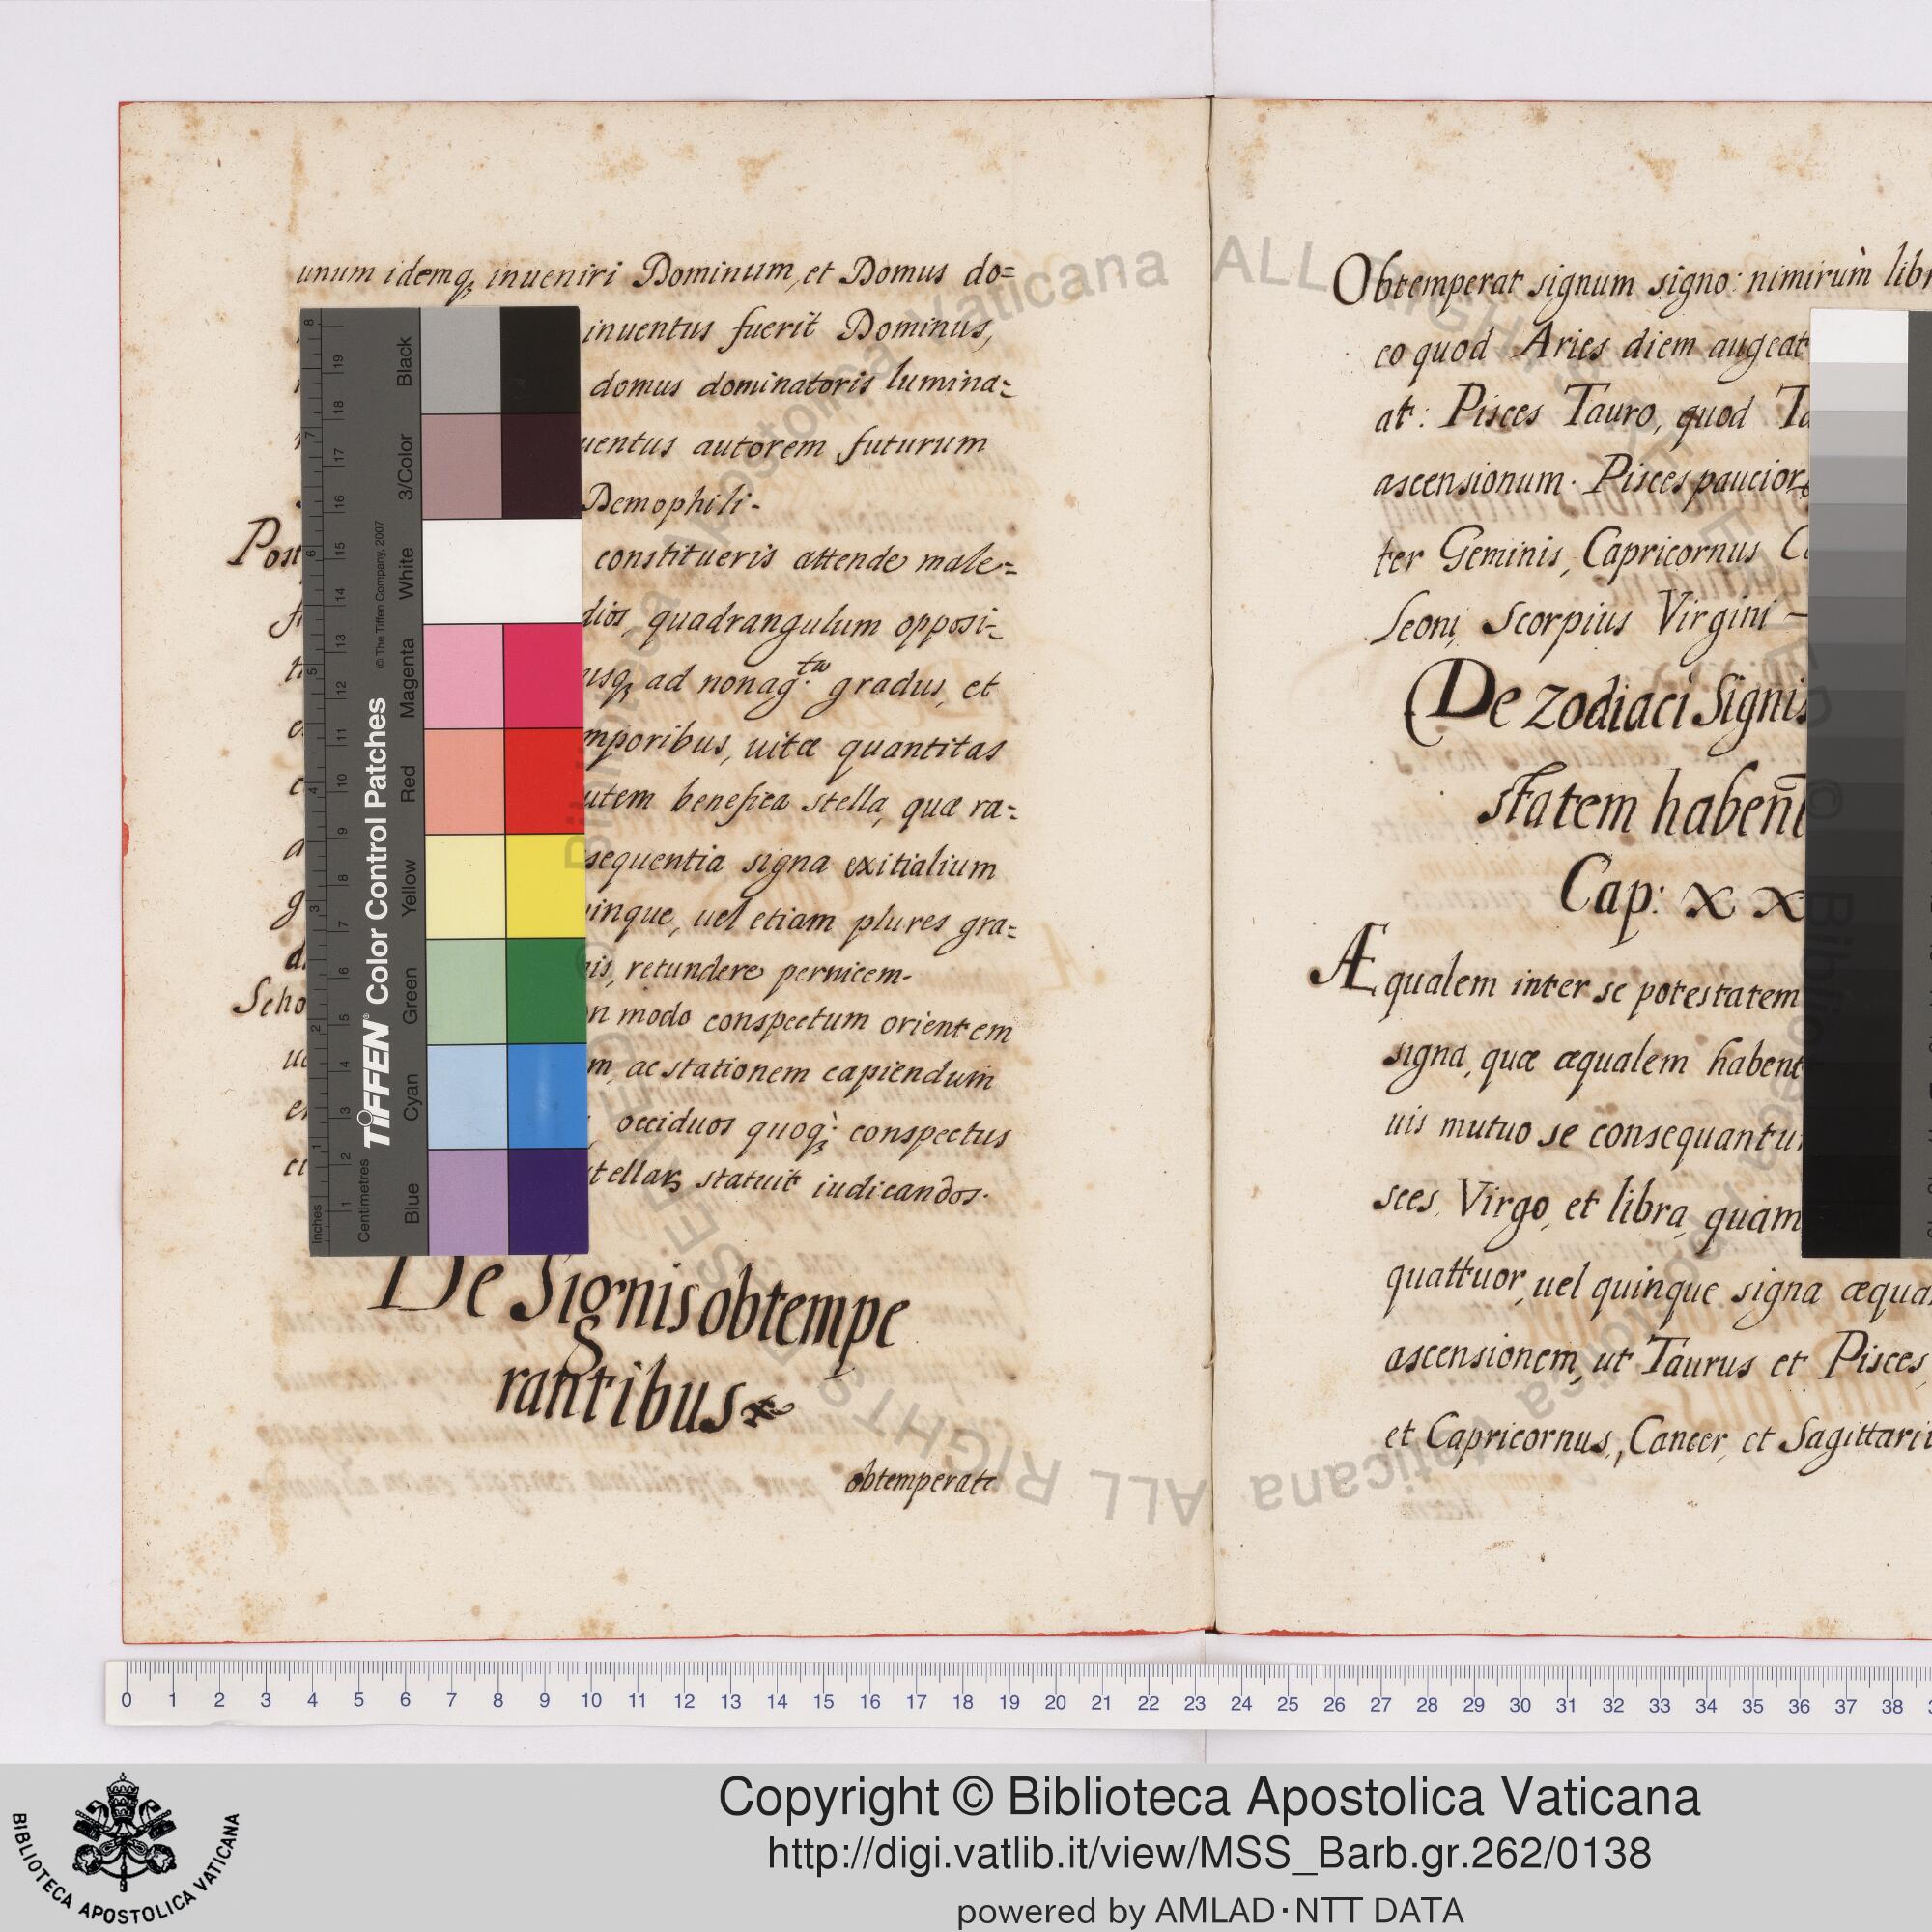 unum idemq; inueniri Dominum, et Domus do=
inuentus fuerit Dominus,
domus dominatoris lumina=
uentus autorem futurum
Demophili.
Post constitueris attende male=
dios, quadrangulum opposi=
usq; ad nonag.ta gradus, et
mporibus, uitæ quantitas
utem benefica stella, quæ ra=
sequentia signa exitialium
inque, uel etiam plures gra=
is, retundere pernicem.
Scho n modo conspectum orientem
m, ac stationem capiendum
occiduos quoq; conspectus
tellas statuit iudicandos.
De Signis obtempe
rantibus
obtemperate
Obtemperat signum signo: nimirùm libr
eo quod Aries diem augeat
at: Pisces Tauro, quod Ta
ascensionum. Pisces paucior
ter Geminis, Capricornus C
Leoni, Scorpius Virgini –
De Zodiaci Signis
statem habent
Cap: xx
Æqualem inter se potestatem
signa, quæ æqualem habent
uis mutuo se consequantur
sces, Virgo, et libra, quam
quattuor, uel quinque signa æqua
ascensionem, ut Taurus et Pisces,
et Capricornus, Cancer, et Sagittari
Inches
Centimetres
TIFFEN® Color Control Patches
© The Tiffen Company, 2007
Blue Cyan Green Yellow Red Magenta White 3/Color Black
1 2 3 4 5 6 7 8
1 2 3 4 5 6 7 8 9 10 11 12 13 14 15 16 17 18 19
© Biblioteca Apostolica Vaticana ALL RIGHTS RESERVED
0 1 2 3 4 5 6 7 8 9 10 11 12 13 14 15 16 17 18 19 20 21 22 23 24 25 26 27 28 29 30 31 32 33 34 35 36 37 38
BIBLIOTECA APOSTOLICA VATICANA
Copyright © Biblioteca Apostolica Vaticana
http://digi.vatlib.it/view/MSS_Barb.gr.262/0138
powered by AMLAD·NTT DATA